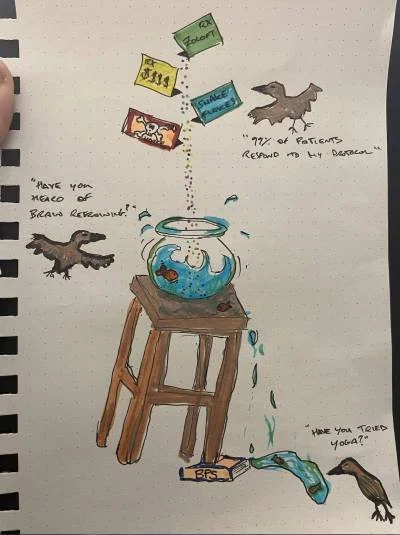 RX
ZOLOFT
RX
$$$$
SNAKE
FLAKES
"99% OF PATIENTS
RESPOND TO MY PROTOCOL"
"HAVE YOU
HEARD OF
BRAIN REWIRING?"
"HAVE YOU TRIED
YOGA?"
BPS